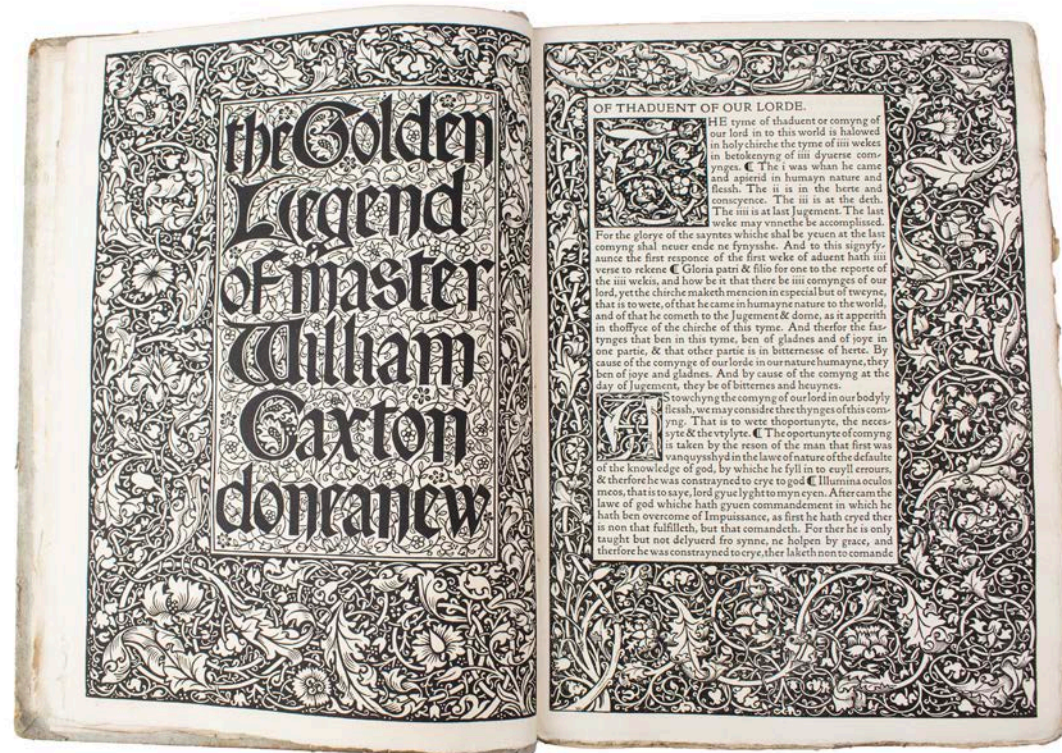 the Golden
Legend
of master
William
Caxton
done anew
OF THADUENT OF OUR LORDE.
THE tyme of thaduent or comyng of
our lord in to this world is halowed
in holy chirche the tyme of iiii wekes
in betokenyng of iiii dyuerse com-
ynges. ⁋ The i was whan he came
and apierid in humayn nature and
flessh. The ii is in the herte and
conscyence. The iii is at the deth.
The iiii is at last Jugement. The last
weke may vnnethe be accomplissed.
For the glorye of the sayntes whiche shal be yeuen at the last
comyng shal neuer ende ne fynysshe. And to this signyfy-
aunce the first responce of the first weke of aduent hath iiii
verse to rekene ⁋ Gloria patri & filio for one to the reporte of
the iiii wekis, and how be it that there be iiii comynges of our
lord, yet the chirche maketh mencion in especial but of tweyne,
that is to wete, of that he came in humayne nature to the world,
and of that he cometh to the Jugement & dome, as it apperith
in thoffyce of the chirche of this tyme. And therfor the fas-
tynges that ben in this tyme, ben of gladnes and of joye in
one partie, & that other partie is in bitternesse of herte. By
cause of the comynge of our lorde in our nature humayne, they
ben of joye and gladnes. And by cause of the comyng at the
day of Jugement, they be of bitternes and heuynes.
AS towchyng the comyng of our lord in our bodyly
flessh, we may considre thre thynges of this com-
yng. That is to wete thoportunyte, the neces-
syte & the vtylyte. ⁋ The oportunyte of comyng
is taken by the reson of the man that first was
vanquysshyd in the lawe of nature of the defaulte
of the knowledge of god, by whiche he fyll in to euyll errours,
& therfore he was constrayned to crye to god ⁋ Illumina oculos
meos, that is to saye, lord gyue lyght to myn eyen. After cam the
lawe of god whiche hath gyuen commandement in which he
hath ben overcome of Impuissance, as first he hath cryed ther
is non that fulfilleth, but that comandeth. For ther he is only
taught but not delyuerd fro synne, ne holpen by grace, and
therfore he was constrayned to crye, ther laketh non to comande